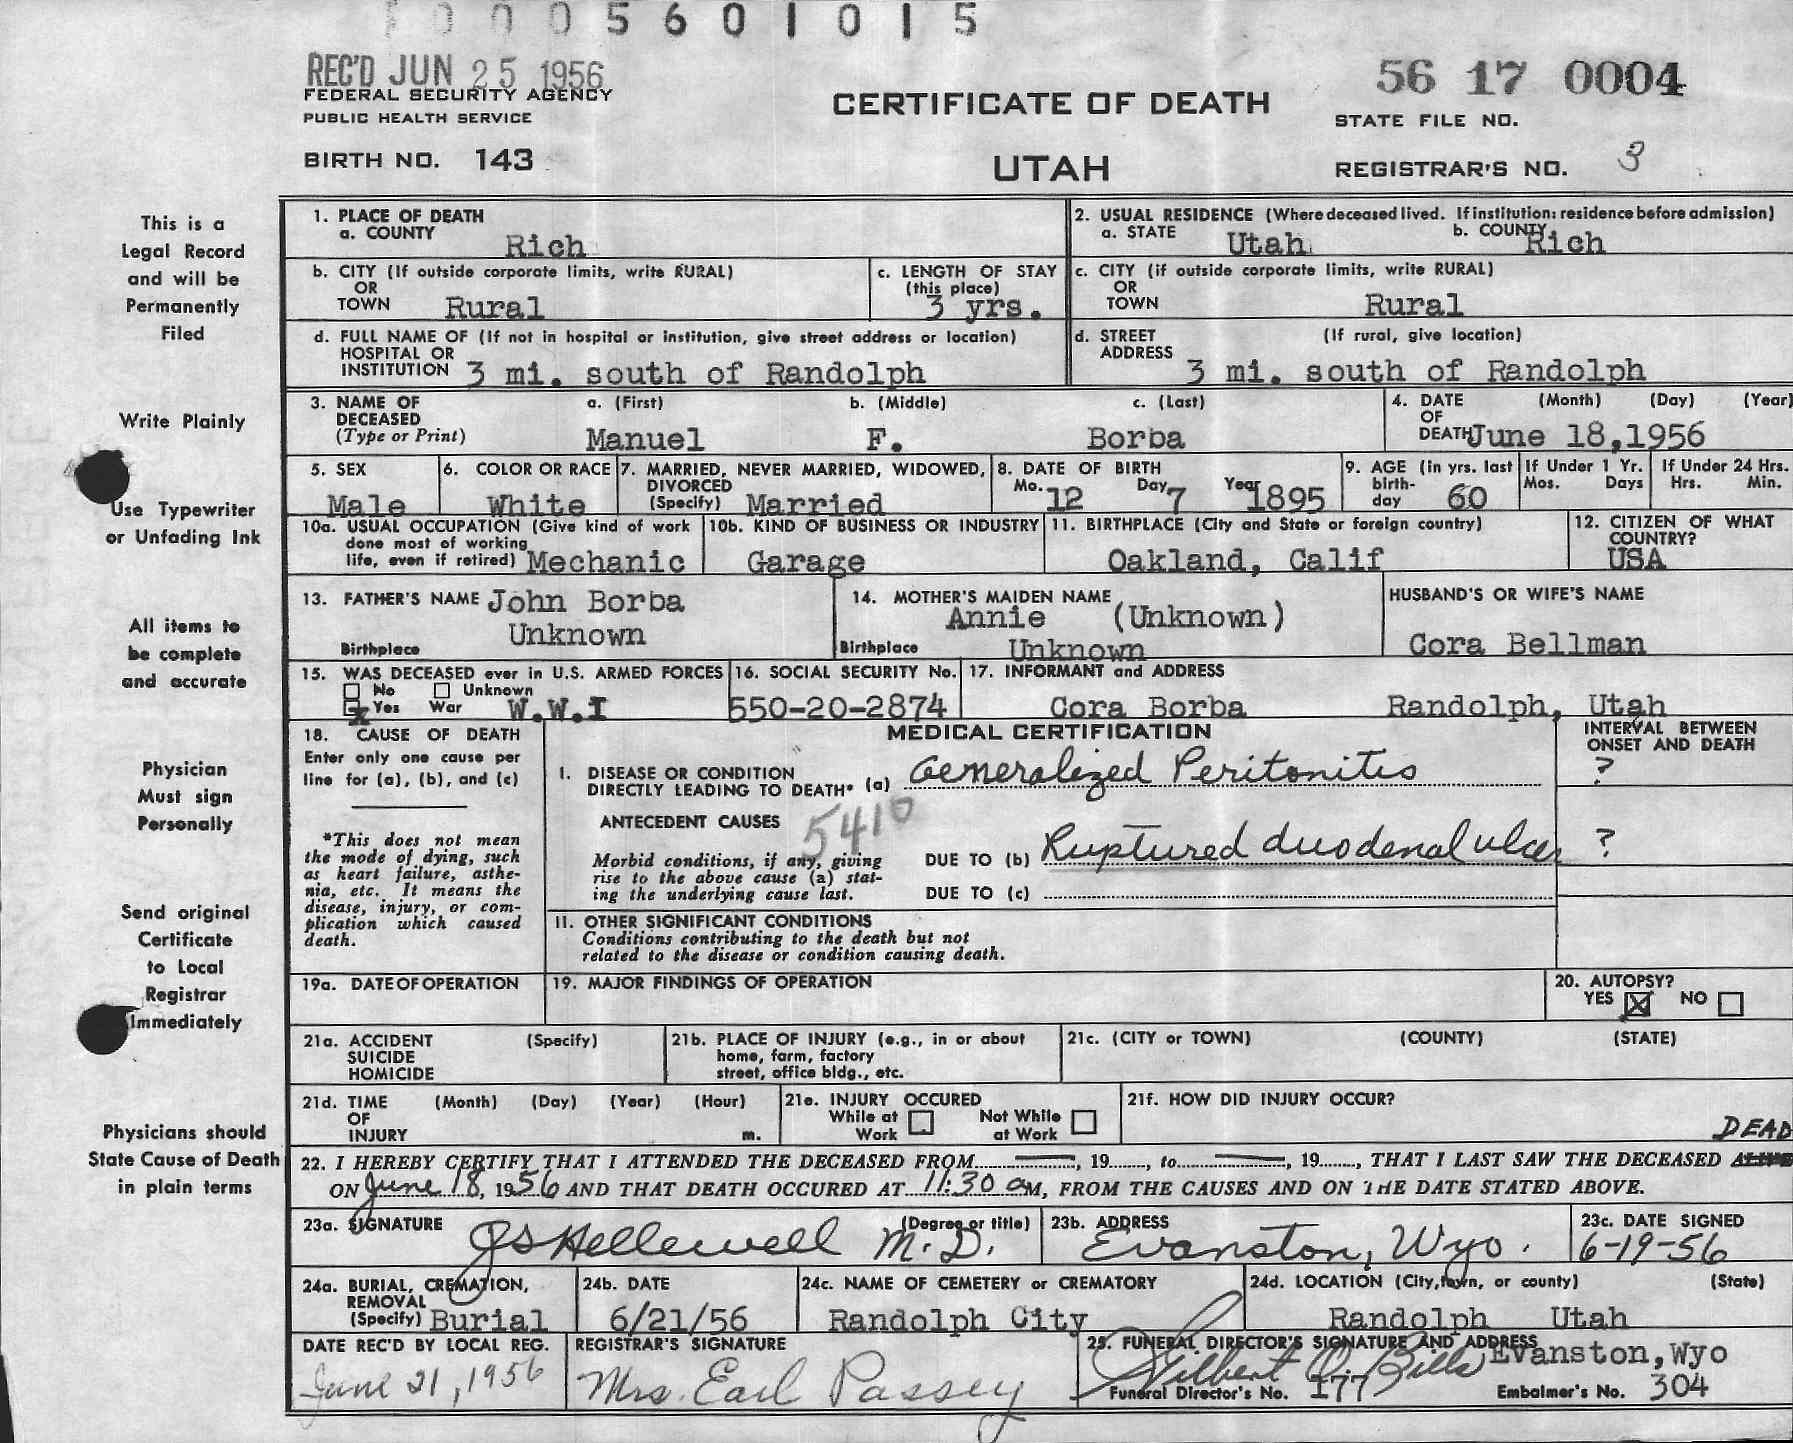 0005601015
REC'D JUN 25 1956
FEDERAL SECURITY AGENCY
PUBLIC HEALTH SERVICE
BIRTH NO. 143
CERTIFICATE OF DEATH
UTAH
56 17 0004
STATE FILE NO.
REGISTRAR'S NO. 3
This is a
Legal Record
and will be
Permanently
Filed
Write Plainly
Use Typewriter
or Unfading Ink
All items to
be complete
and accurate
Physician
Must sign
Personally
Send original
Certificate
to Local
Registrar
Immediately
Physicians should
State Cause of Death
in plain terms
1. PLACE OF DEATH
a. COUNTY Rich
2. USUAL RESIDENCE (Where deceased lived. If institution: residence before admission)
a. STATE Utah b. COUNTY Rich
b. CITY (If outside corporate limits, write RURAL)
OR
TOWN Rural
c. LENGTH OF STAY
(this place)
3 yrs.
c. CITY (if outside corporate limits, write RURAL)
OR
TOWN Rural
d. FULL NAME OF (If not in hospital or institution, give street address or location)
HOSPITAL OR
INSTITUTION 3 mi. south of Randolph
d. STREET (If rural, give location)
ADDRESS 3 mi. south of Randolph
3. NAME OF a. (First) b. (Middle) c. (Last)
DECEASED
(Type or Print) Manuel F. Borba
4. DATE (Month) (Day) (Year)
OF
DEATH June 18,1956
5. SEX
Male
6. COLOR OR RACE
White
7. MARRIED, NEVER MARRIED, WIDOWED,
DIVORCED
(Specify) Married
8. DATE OF BIRTH
Mo. 12 Day 7 Year 1895
9. AGE (in yrs. last
birth-
day 60
If Under 1 Yr.
Mos. Days
If Under 24 Hrs.
Hrs. Min.
10a. USUAL OCCUPATION (Give kind of work
done most of working
life, even if retired) Mechanic
10b. KIND OF BUSINESS OR INDUSTRY
Garage
11. BIRTHPLACE (City and State or foreign country)
Oakland, Calif
12. CITIZEN OF WHAT
COUNTRY?
USA
13. FATHER'S NAME John Borba
Birthplace Unknown
14. MOTHER'S MAIDEN NAME
Annie (Unknown)
Birthplace Unknown
HUSBAND'S OR WIFE'S NAME
Cora Bellman
15. WAS DECEASED ever in U.S. ARMED FORCES
No Unknown
x Yes War W.W.I
16. SOCIAL SECURITY No.
550-20-2874
17. INFORMANT and ADDRESS
Cora Borba Randolph, Utah
18. CAUSE OF DEATH
Enter only one cause per
line for (a), (b), and (c)
*This does not mean
the mode of dying, such
as heart failure, asthe-
nia, etc. It means the
disease, injury, or com-
plication which caused
death.
MEDICAL CERTIFICATION
INTERVAL BETWEEN
ONSET AND DEATH
I. DISEASE OR CONDITION
DIRECTLY LEADING TO DEATH* (a) Generalized Peritonitis ?
ANTECEDENT CAUSES 5410
Morbid conditions, if any, giving
rise to the above cause (a) stat-
ing the underlying cause last.
DUE TO (b) Ruptured duodenal ulcer ?
DUE TO (c)
II. OTHER SIGNIFICANT CONDITIONS
Conditions contributing to the death but not
related to the disease or condition causing death.
19a. DATE OF OPERATION
19. MAJOR FINDINGS OF OPERATION
20. AUTOPSY?
YES X NO
21a. ACCIDENT (Specify)
SUICIDE
HOMICIDE
21b. PLACE OF INJURY (e.g., in or about
home, farm, factory
street, office bldg., etc.
21c. (CITY or TOWN) (COUNTY) (STATE)
21d. TIME (Month) (Day) (Year) (Hour)
OF
INJURY m.
21e. INJURY OCCURED
While at Work Not While at Work
21f. HOW DID INJURY OCCUR?
DEAD
22. I HEREBY CERTIFY THAT I ATTENDED THE DECEASED FROM , 19 , to , 19 , THAT I LAST SAW THE DECEASED ALIVE
ON June 18, 1956 AND THAT DEATH OCCURED AT 11:30 aM, FROM THE CAUSES AND ON THE DATE STATED ABOVE.
23a. SIGNATURE (Degree or title)
JS Hellewell M.D.
23b. ADDRESS
Evanston, Wyo.
23c. DATE SIGNED
6-19-56
24a. BURIAL, CREMATION,
REMOVAL
(Specify) Burial
24b. DATE
6/21/56
24c. NAME OF CEMETERY or CREMATORY
Randolph City
24d. LOCATION (City, town, or county) (State)
Randolph Utah
DATE REC'D BY LOCAL REG.
June 21, 1956
REGISTRAR'S SIGNATURE
Mrs. Earl Passey
25. FUNERAL DIRECTOR'S SIGNATURE AND ADDRESS
Evanston, Wyo
Bills
Funeral Director's No. 177 Embalmer's No. 304